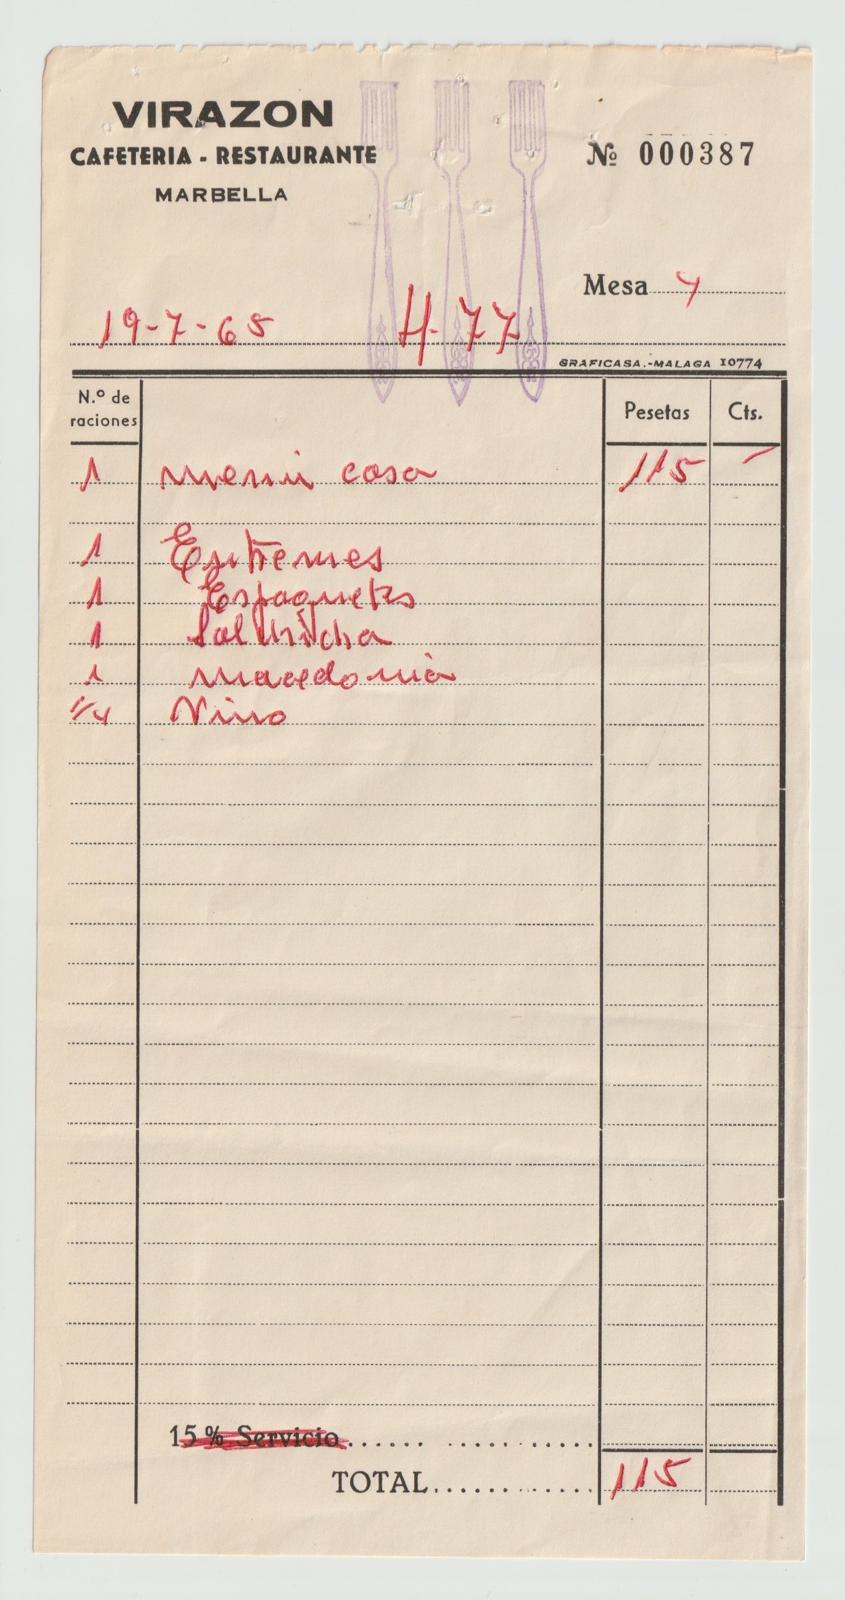 VIRAZON
CAFETERIA - RESTAURANTE
MARBELLA
Nº 000387
Mesa 4
19-7-65 H-77
GRAFICASA.-MALAGA 10774
N.º de raciones Pesetas Cts.
1 menú casa 115 -
1 Entremes
1 Espaguetis
1 Salchicha
1 macedonia
1/4 Vino
15 % Servicio
TOTAL 115